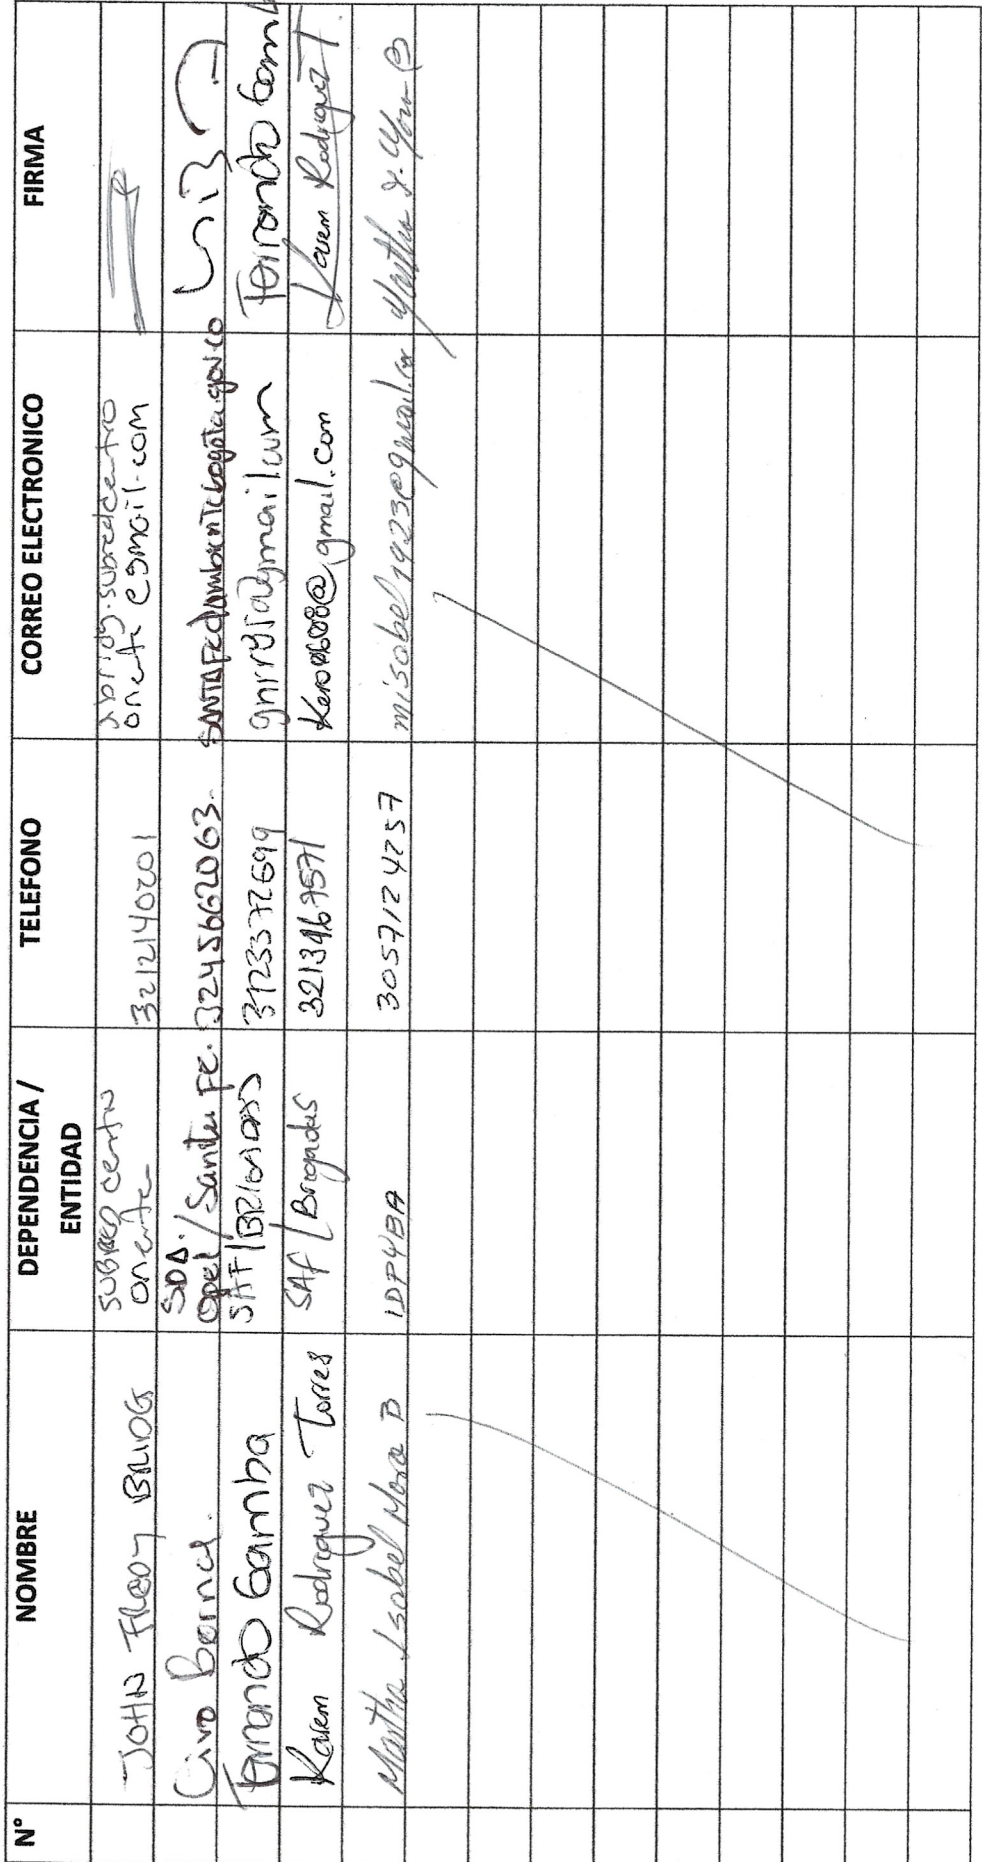 N° NOMBRE DEPENDENCIA / ENTIDAD TELEFONO CORREO ELECTRONICO FIRMA
JOHN FREDY SUBRED centro oriente 3212140201 subredcentro oriente @gmail.com
Ciro SDA. / Santa Fe. 3245662063.
Fernando Gamba SAF/BRIGADAS 3123372699 Fernando Gamb
Karem Rodriguez Torres SAF / Brigadas 3213467571 @gmail.com Karem Rodriguez T.
Martha Isabel Mora B IDPYBA 3057124257 misabel1923@gmail.co Martha I. Mora B